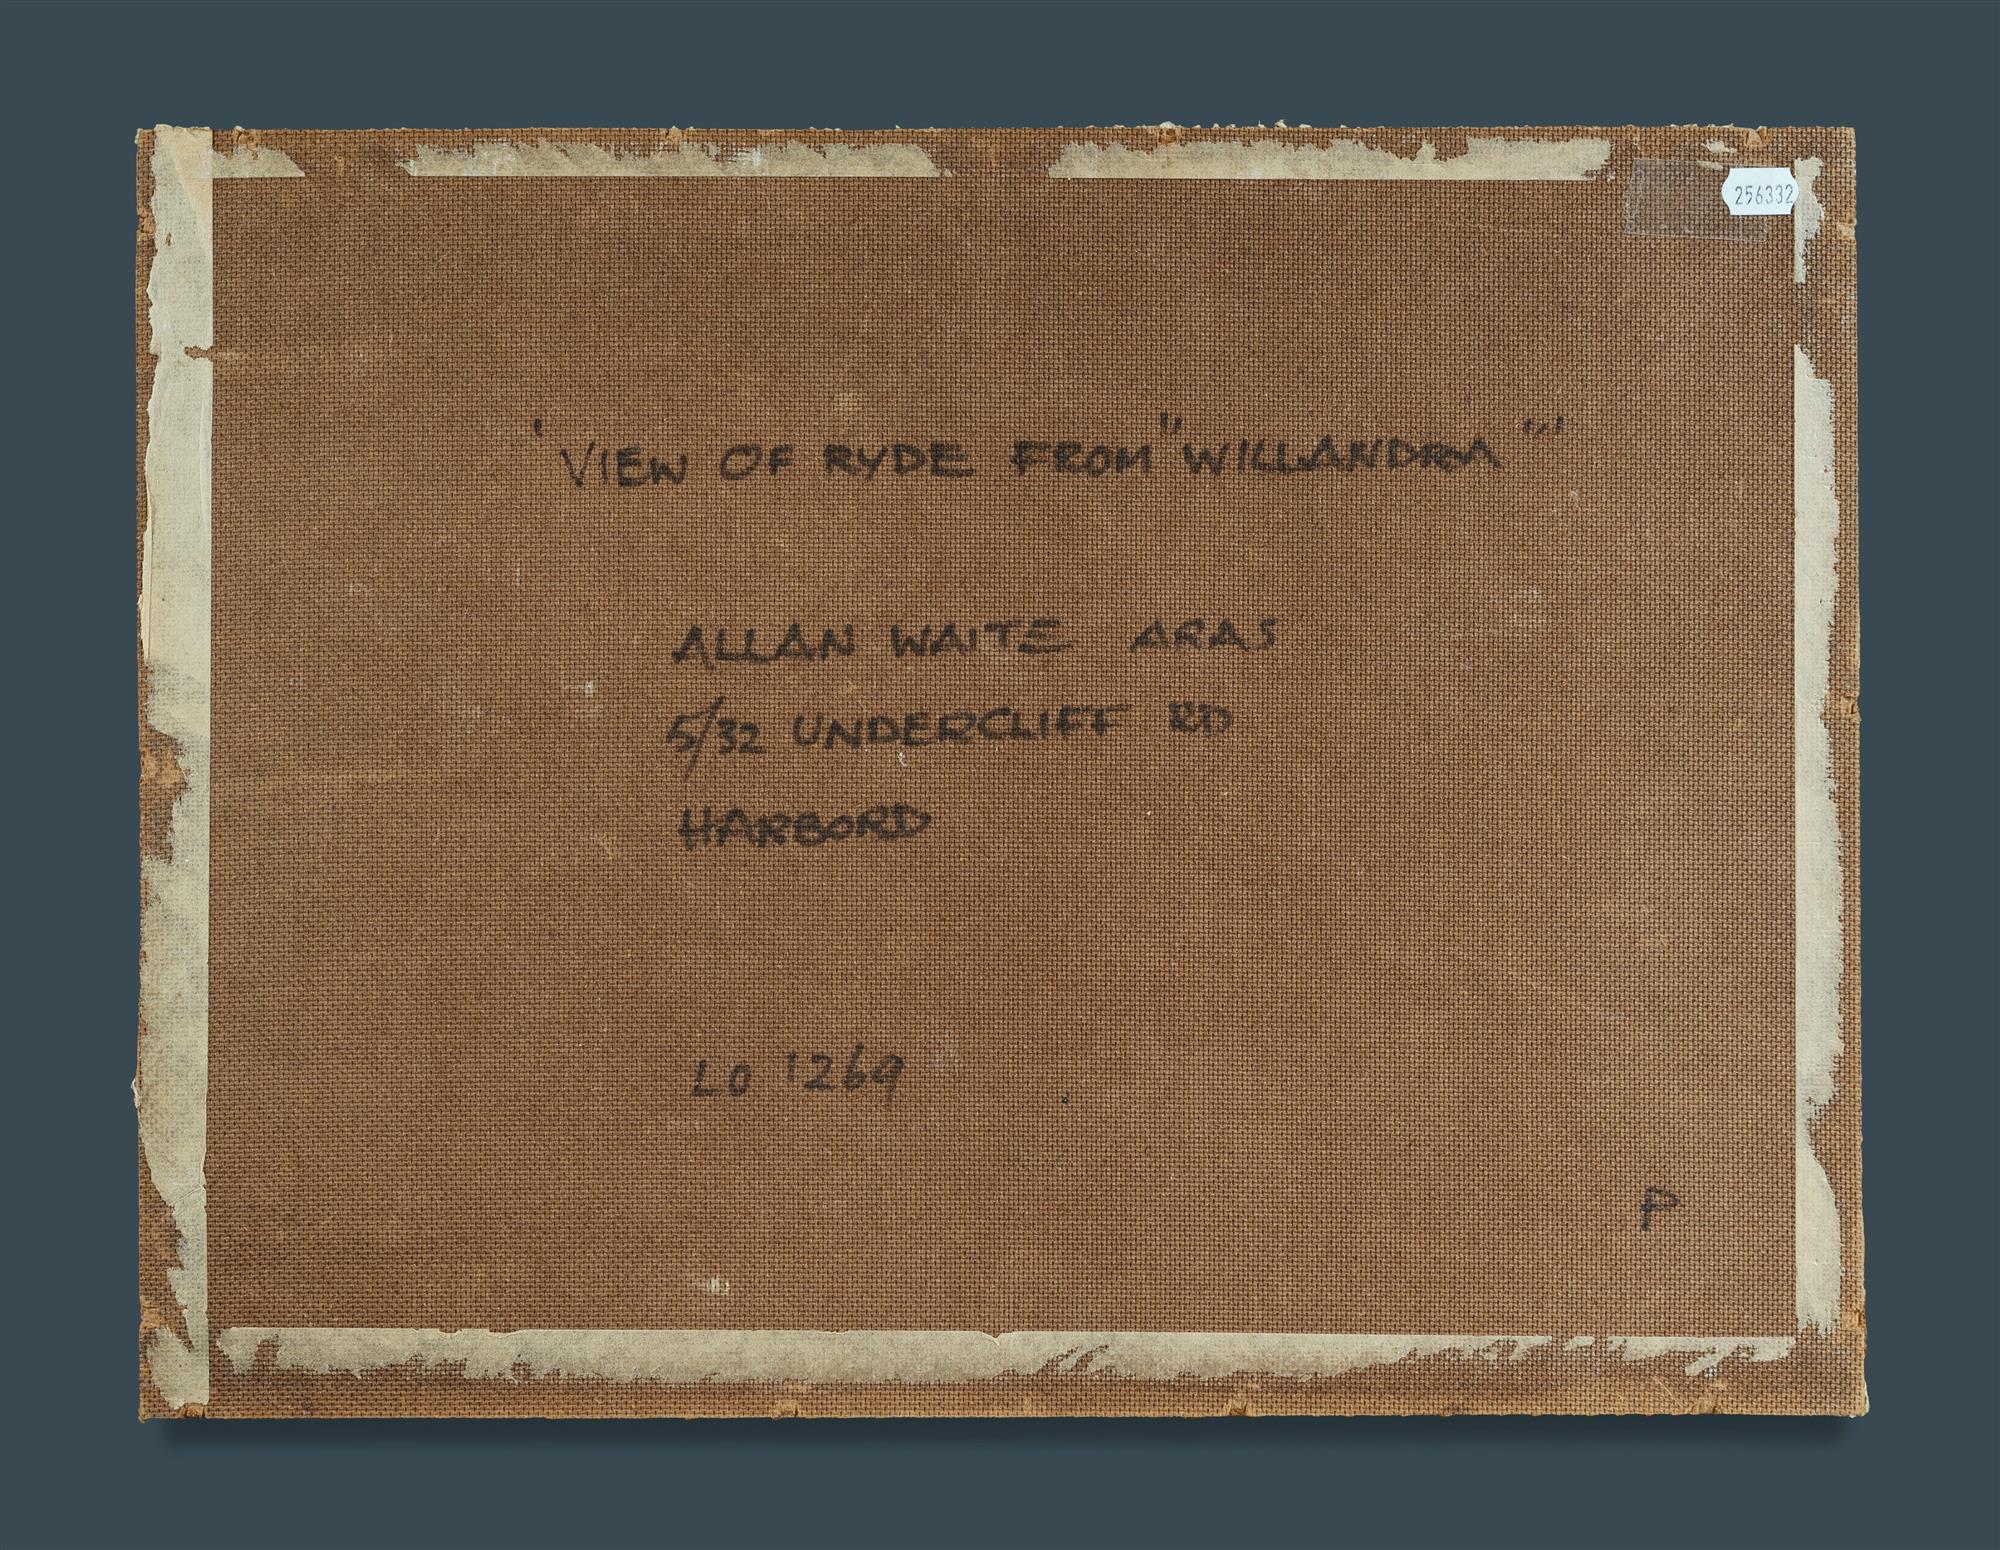 256332
'VIEW OF RYDE FROM "WILLANDRA"'
ALLAN WAITE ARAS
5/32 UNDERCLIFF RD
HARBORD
LO '269
P